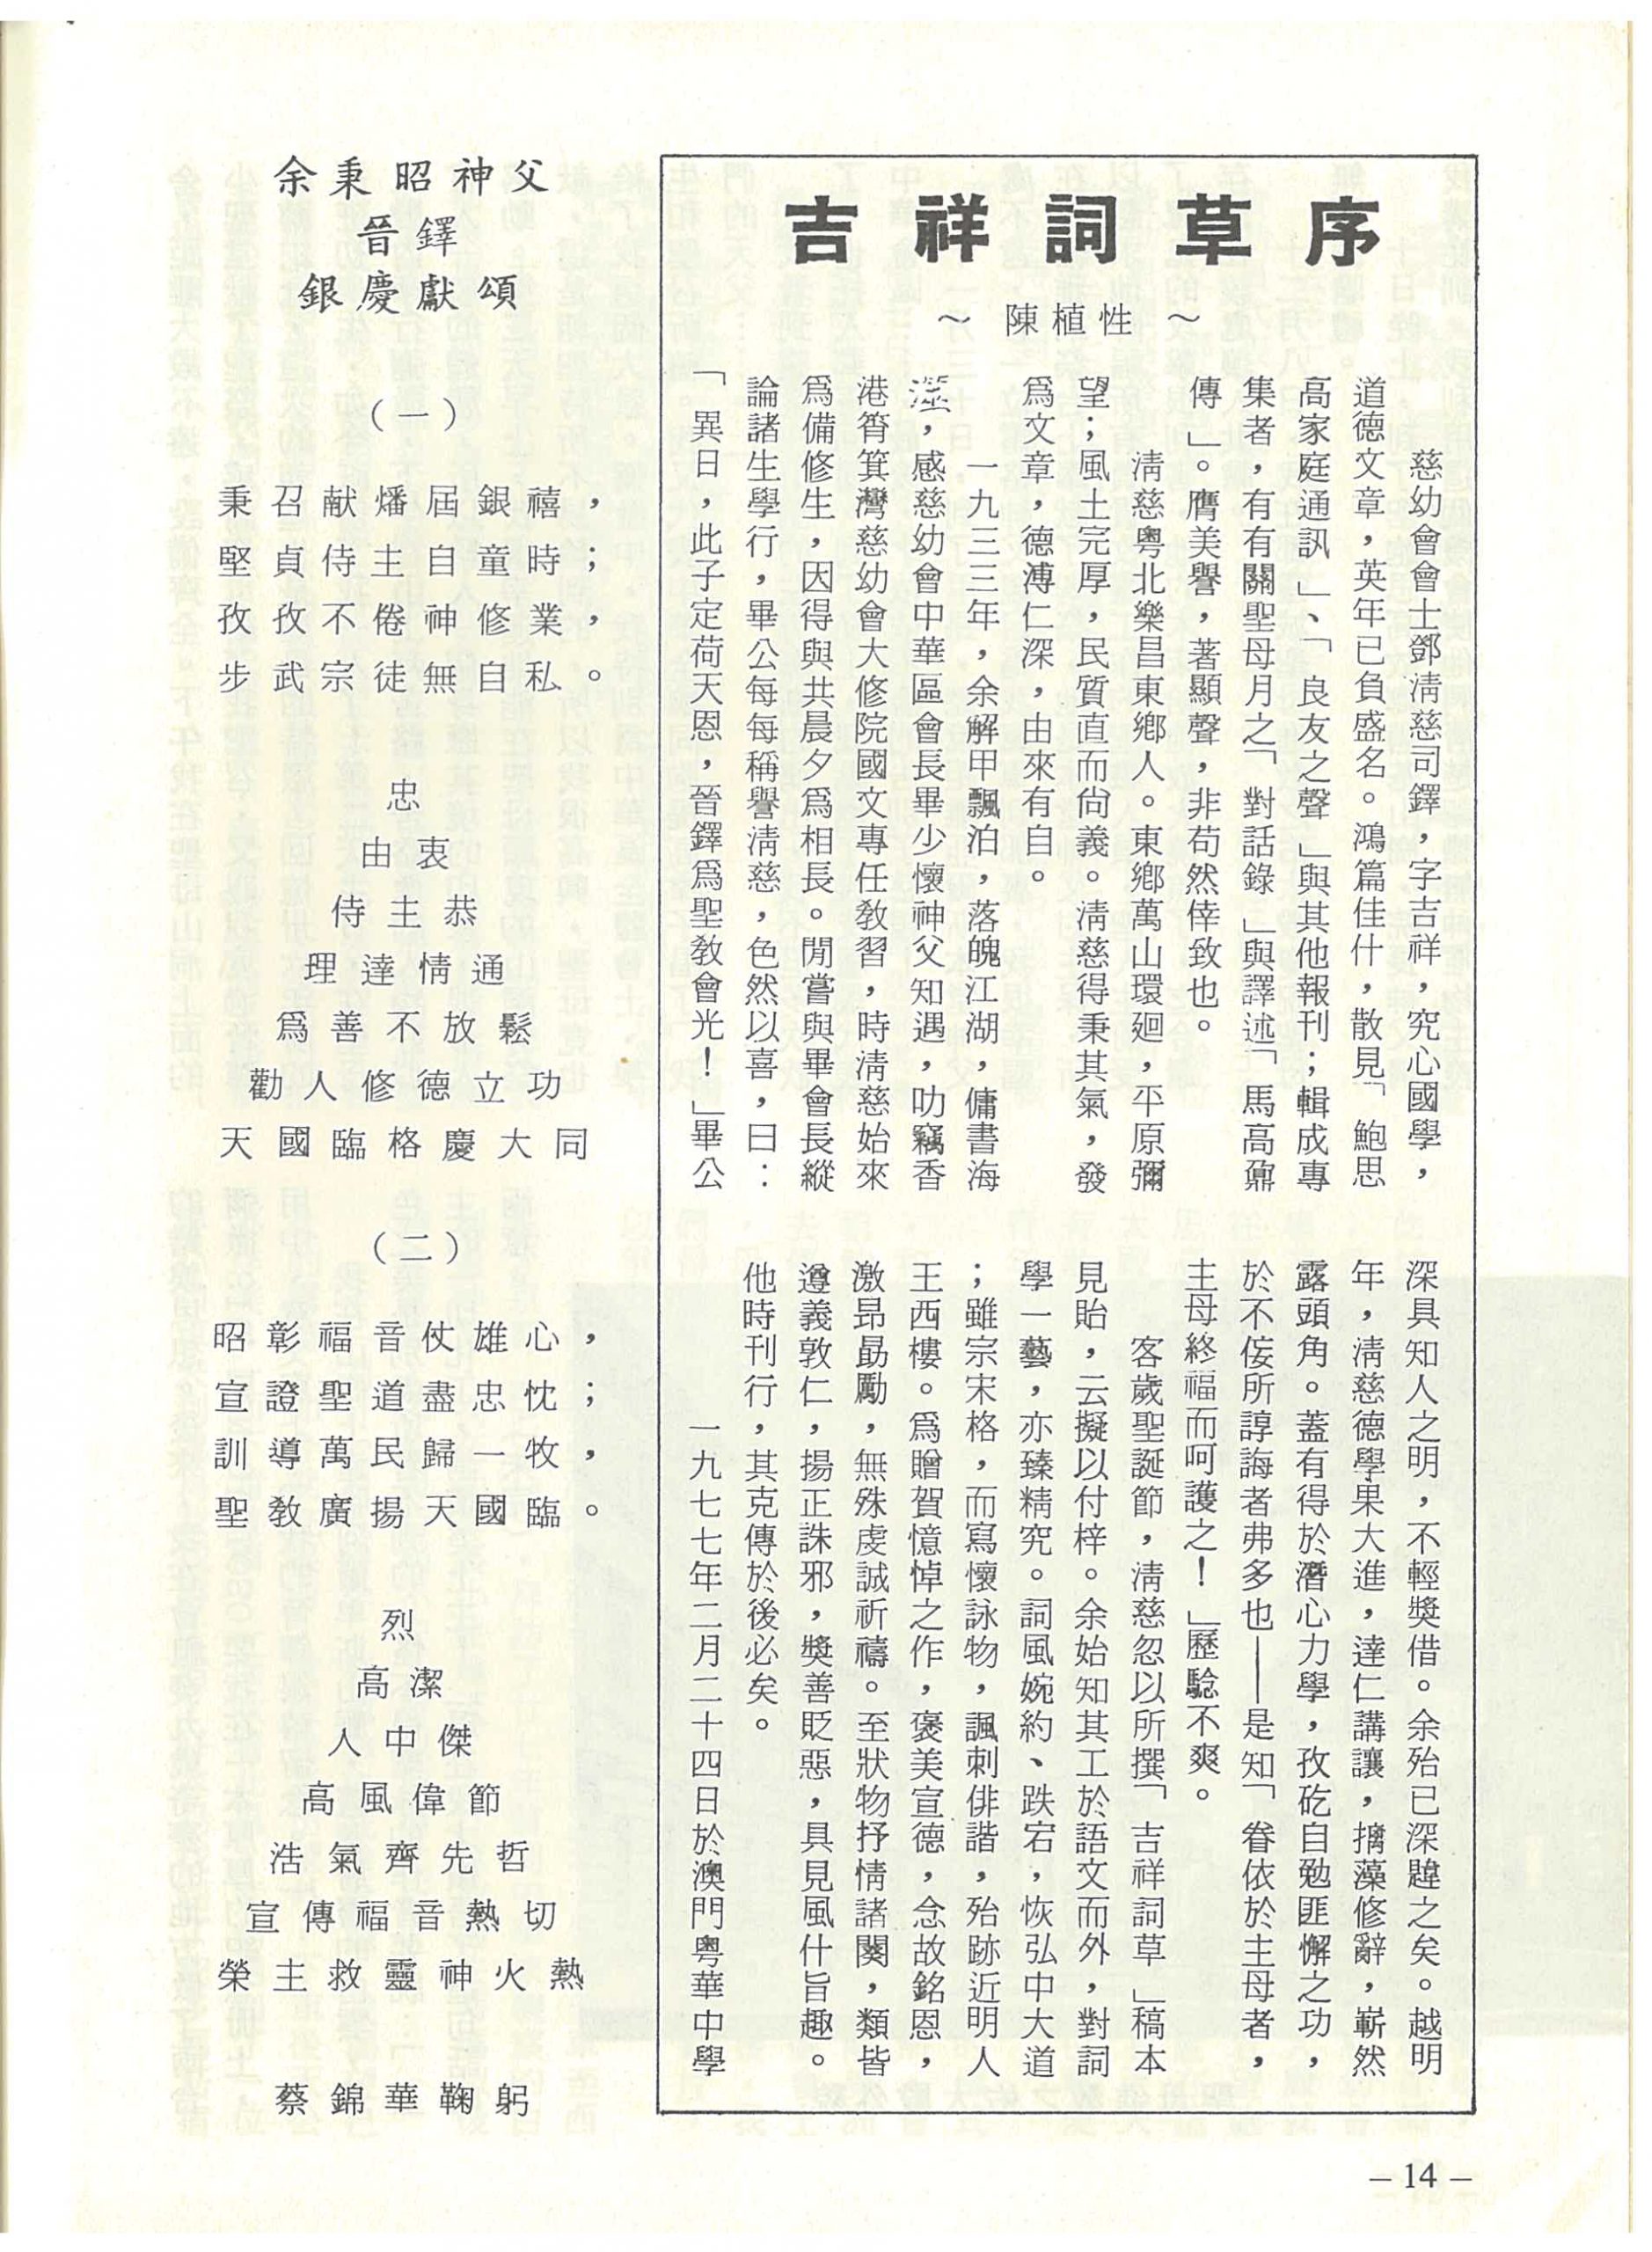 吉祥詞草序
～ 陳植性 ～
慈幼會會士鄧淸慈司鐸，字吉祥，究心國學，
道德文章，英年已負盛名。鴻篇佳什，散見「鮑思
高家庭通訊」、「良友之聲」與其他報刊；輯成專
集者，有有關聖母月之「對話錄」與譯述「馬高鼐
傳」。膺美譽，著顯聲，非苟然倖致也。
淸慈粵北樂昌東鄉人。東鄉萬山環廻，平原彌
望；風土完厚，民質直而尙義。淸慈得秉其氣，發
爲文章，德溥仁深，由來有自。
一九三三年，余解甲飄泊，落魄江湖，傭書海
，感慈幼會中華區會長畢少懷神父知遇，叨竊香
港筲箕灣慈幼會大修院國文專任敎習，時淸慈始來
爲備修生，因得與共晨夕爲相長。閒嘗與畢會長縱
論諸生學行，畢公每每稱譽淸慈，色然以喜，曰：
「異日，此子定荷天恩，晉鐸爲聖敎會光！」畢公
深具知人之明，不輕獎借。余殆已深韙之矣。越明
年，淸慈德學果大進，達仁講讓，摛藻修辭，嶄然
露頭角。蓋有得於潛心力學，孜矻自勉匪懈之功，
於不侫所諄誨者弗多也——是知「眷依於主母者，
主母終福而呵護之！」歷驗不爽。
客歲聖誕節，淸慈忽以所撰「吉祥詞草」稿本
見貽，云擬以付梓。余始知其工於語文而外，對詞
學一藝，亦臻精究。詞風婉約、跌宕，恢弘中大道
；雖宗宋格，而寫懷詠物，諷刺俳諧，殆跡近明人
王西樓。爲贈賀憶悼之作，褒美宣德，念故銘恩，
激昂勗勵，無殊虔誠祈禱。至狀物抒情諸闋，類皆
遵義敦仁，揚正誅邪，獎善貶惡，具見風什旨趣。
他時刊行，其克傳於後必矣。
一九七七年二月二十四日於澳門粵華中學
余秉昭神父
晉鐸
銀慶獻頌
（一）
秉召献燔屆銀禧，
堅貞侍主自童時；
孜孜不倦神修業，
步武宗徒無自私。
忠
由衷
侍主恭
理達情通
爲善不放鬆
勸人修德立功
天國臨格慶大同
（二）
昭彰福音仗雄心，
宣證聖道盡忠忱；
訓導萬民歸一牧，
聖敎廣揚天國臨。
烈
高潔
人中傑
高風偉節
浩氣齊先哲
宣傳福音熱切
榮主救靈神火熱
蔡錦華鞠躬
– 14 –